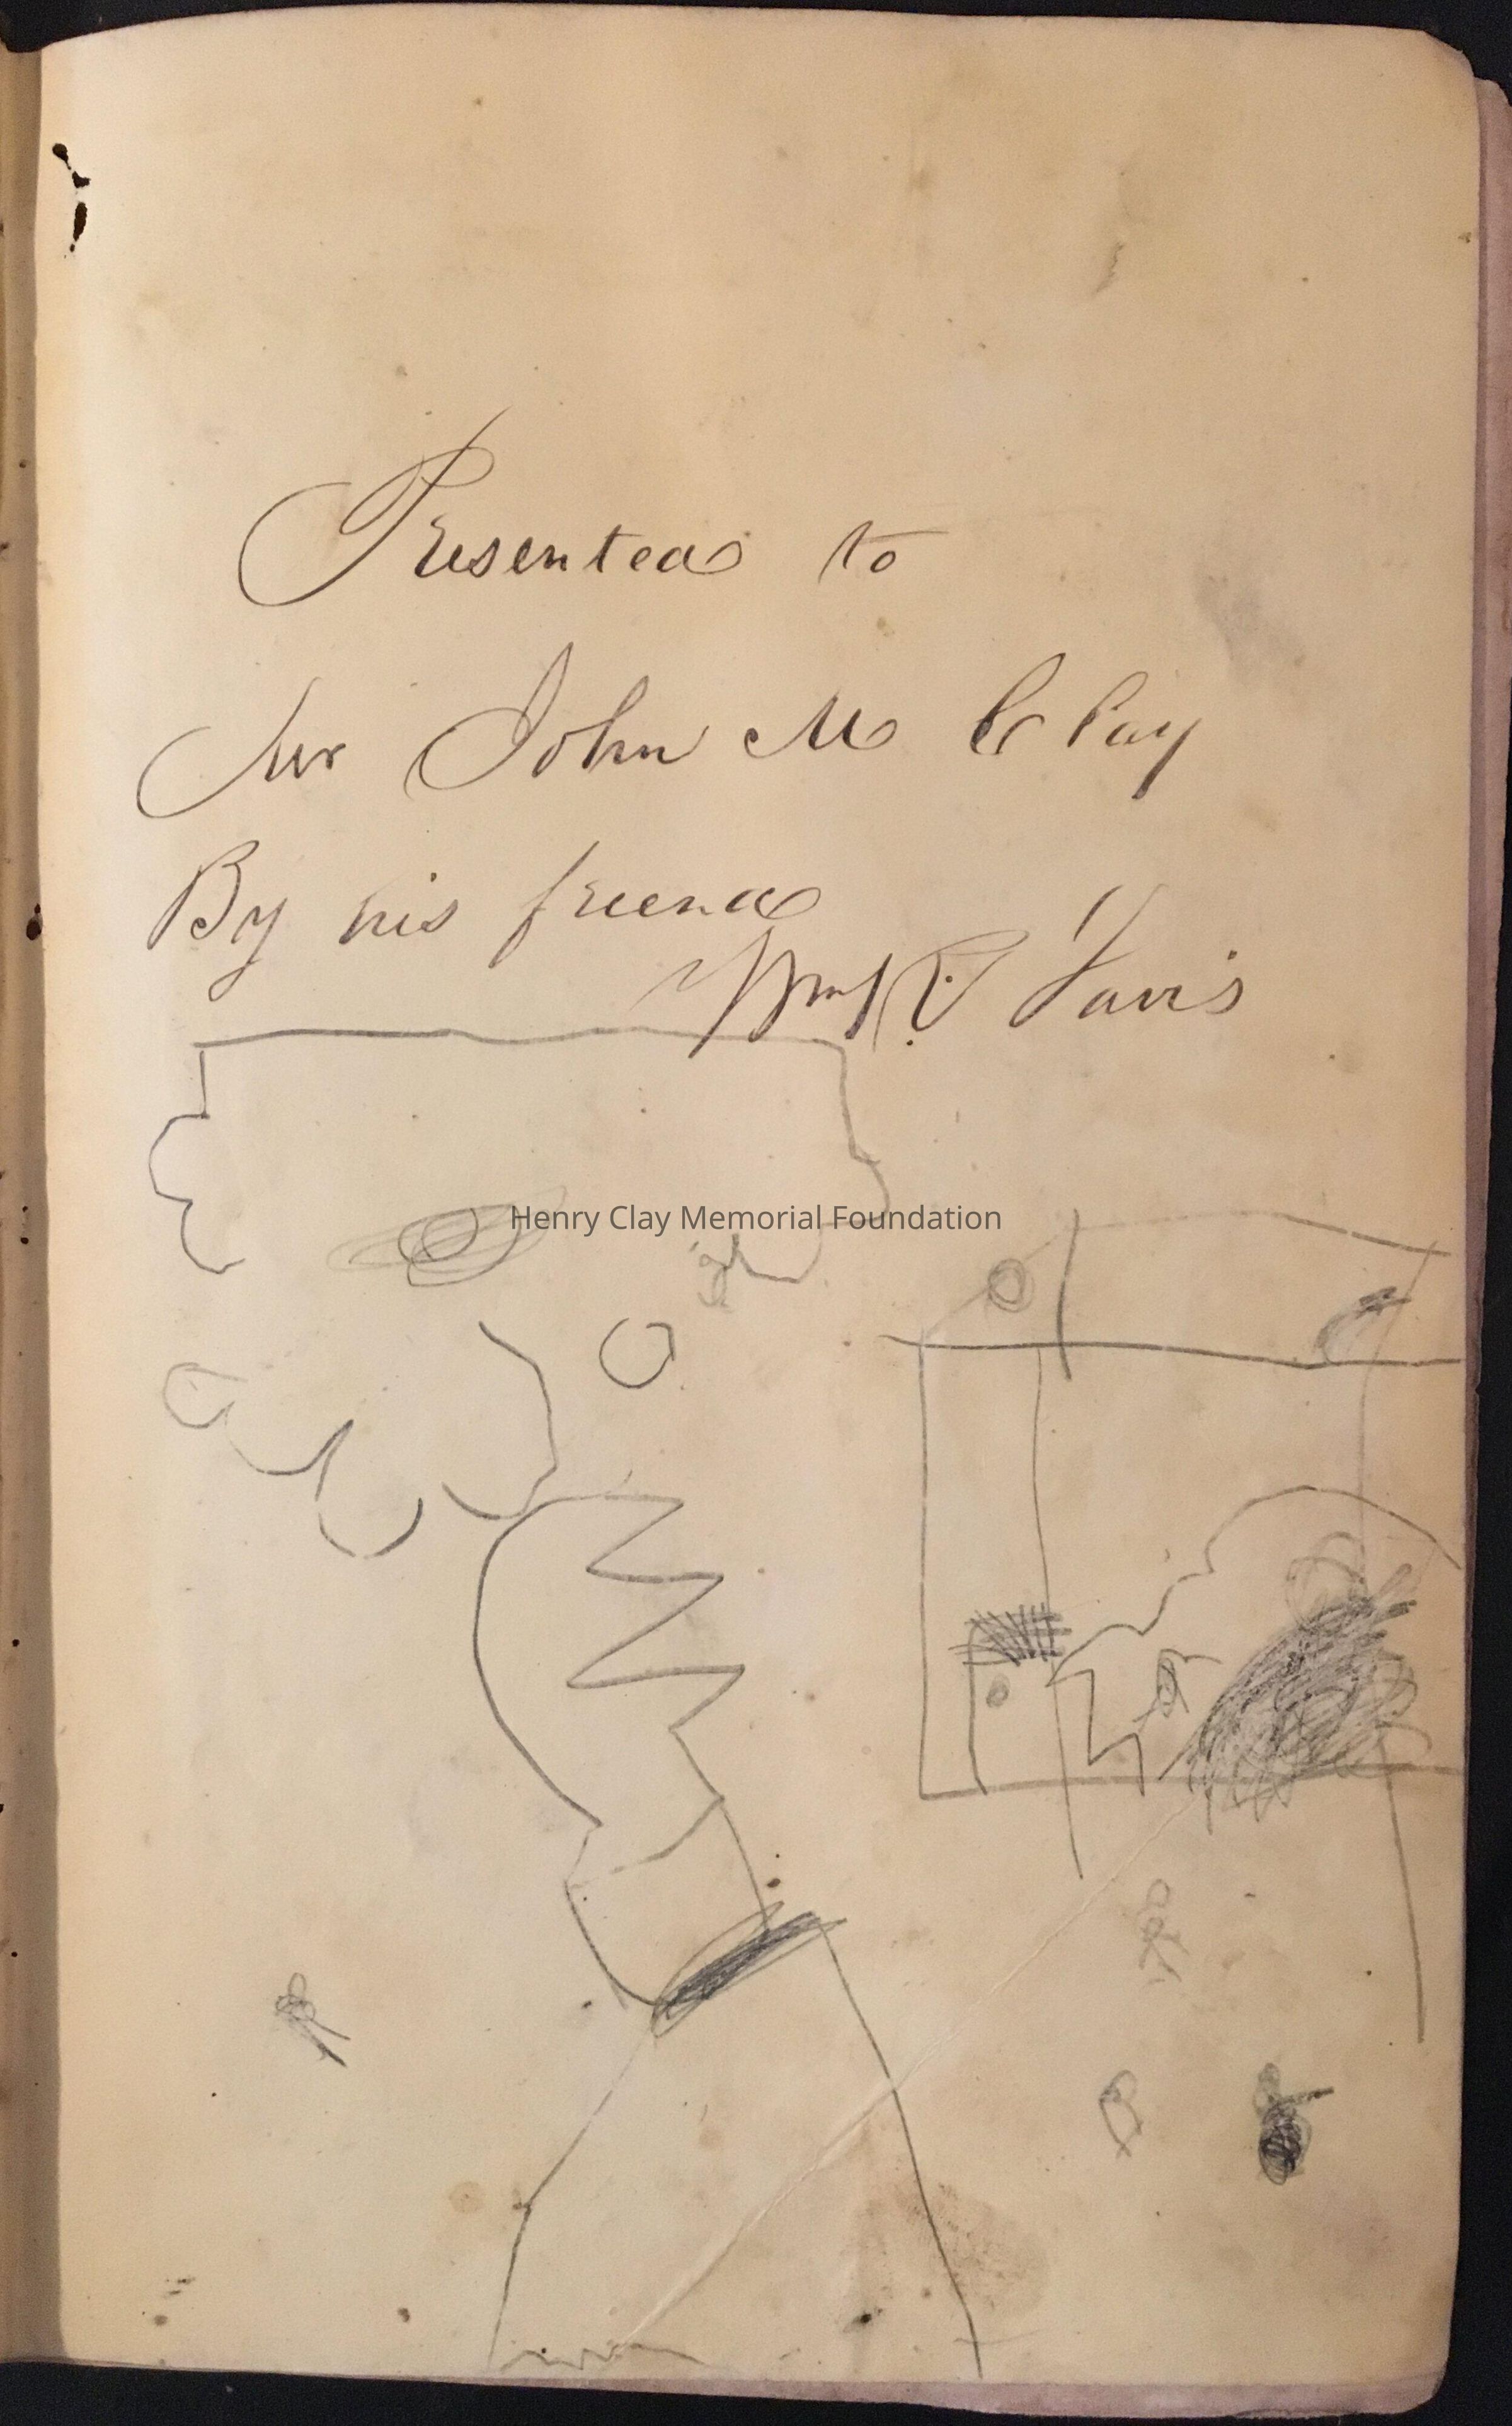 Presented to
Mr John M Clay
By his friend
Wm R. Davis
Henry Clay Memorial Foundation